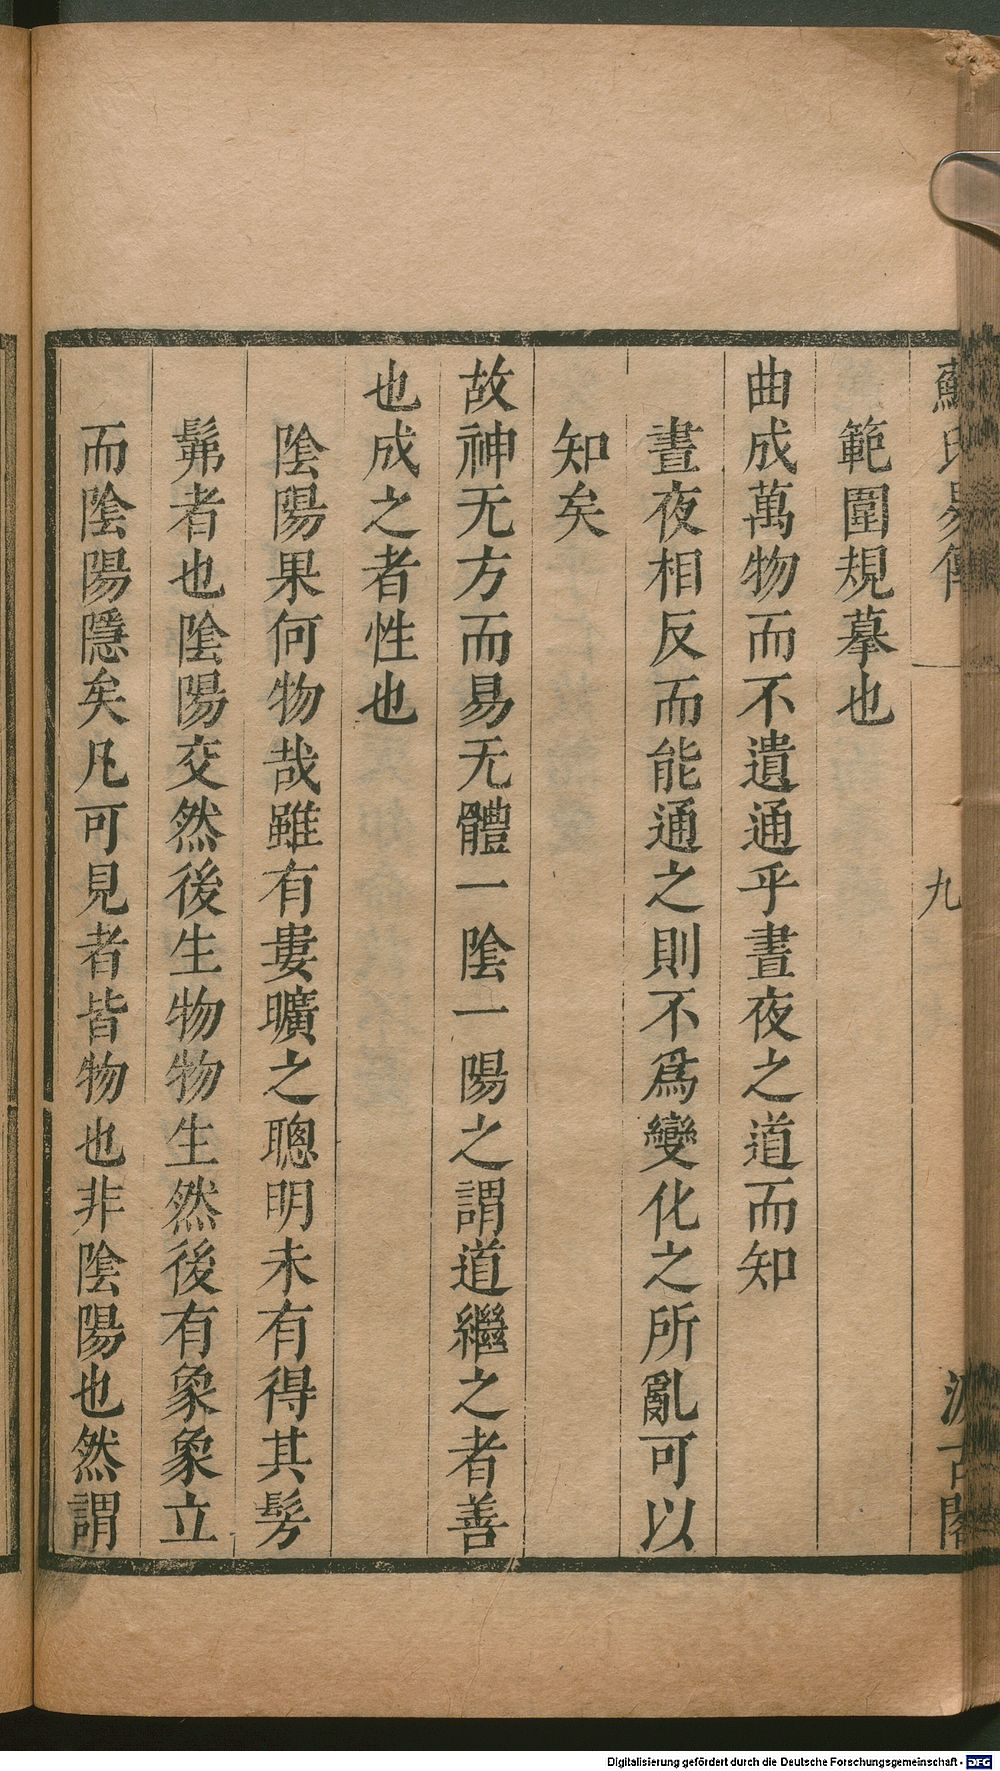 蘇氏易傳 九 汲古閣
範圍規摹也
曲成萬物而不遺通乎晝夜之道而知
晝夜相反而能通之則不爲變化之所亂可以
知矣
故神无方而易无體一陰一陽之謂道繼之者善
也成之者性也
陰陽果何物哉雖有婁曠之聰明未有得其髣
髴者也陰陽交然後生物物生然後有象象立
而陰陽隱矣凡可見者皆物也非陰陽也然謂
Digitalisierung gefördert durch die Deutsche Forschungsgemeinschaft - DFG